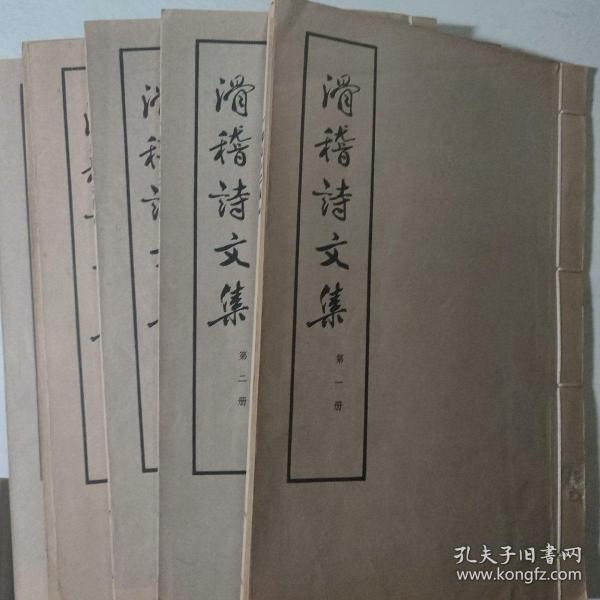 滑稽詩文集
第一册
滑稽詩文集
第二册
滑稽詩文
孔夫子旧书网
www.kongfz.com